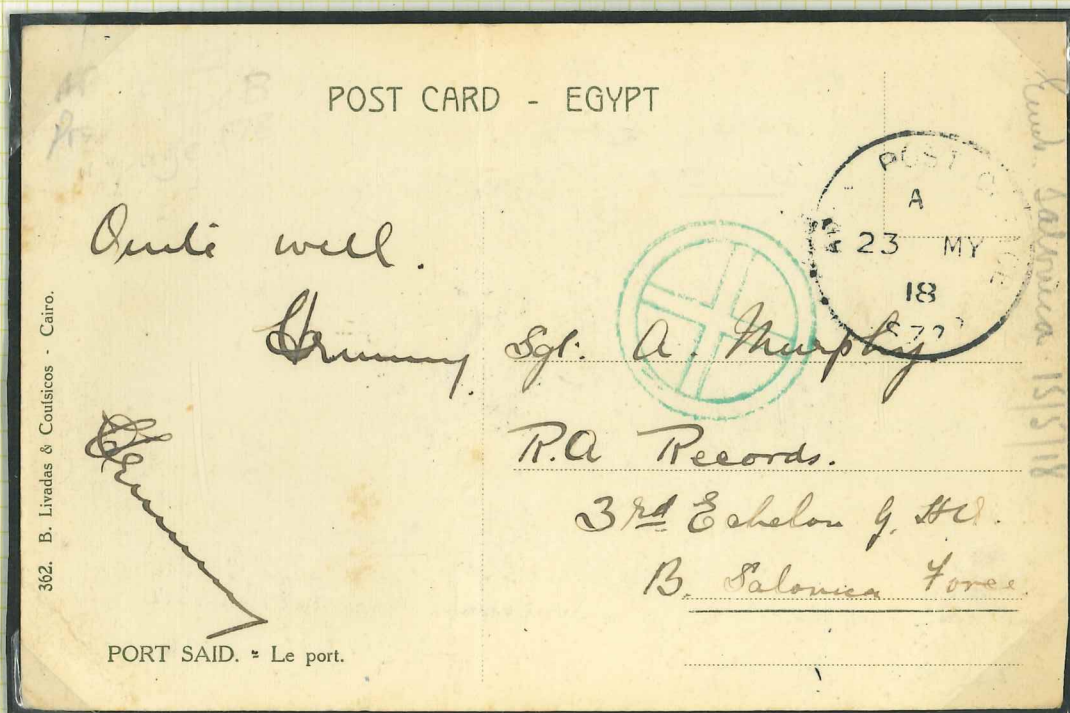 POST CARD - EGYPT
Quite well.
Sgt. A. Murphy
R.A Records.
3rd Echelon G. HQ.
B. Salonica Force.
POST OFFICE
A
23 MY
18
Salonica 15/5/18
362. B. Livadas & Coutsicos - Cairo.
PORT SAID. - Le port.